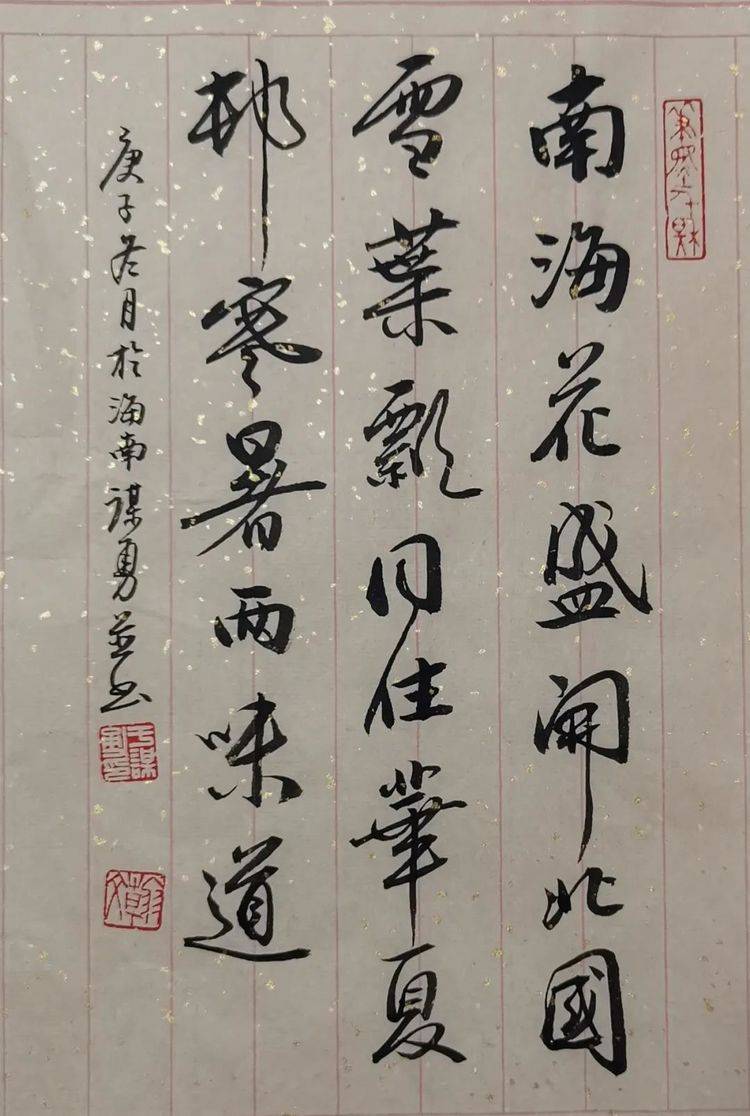 南海花盛開北國
雪葉飄同住華夏
邨寒暑兩味道
庚子冬月於海南謀勇並书